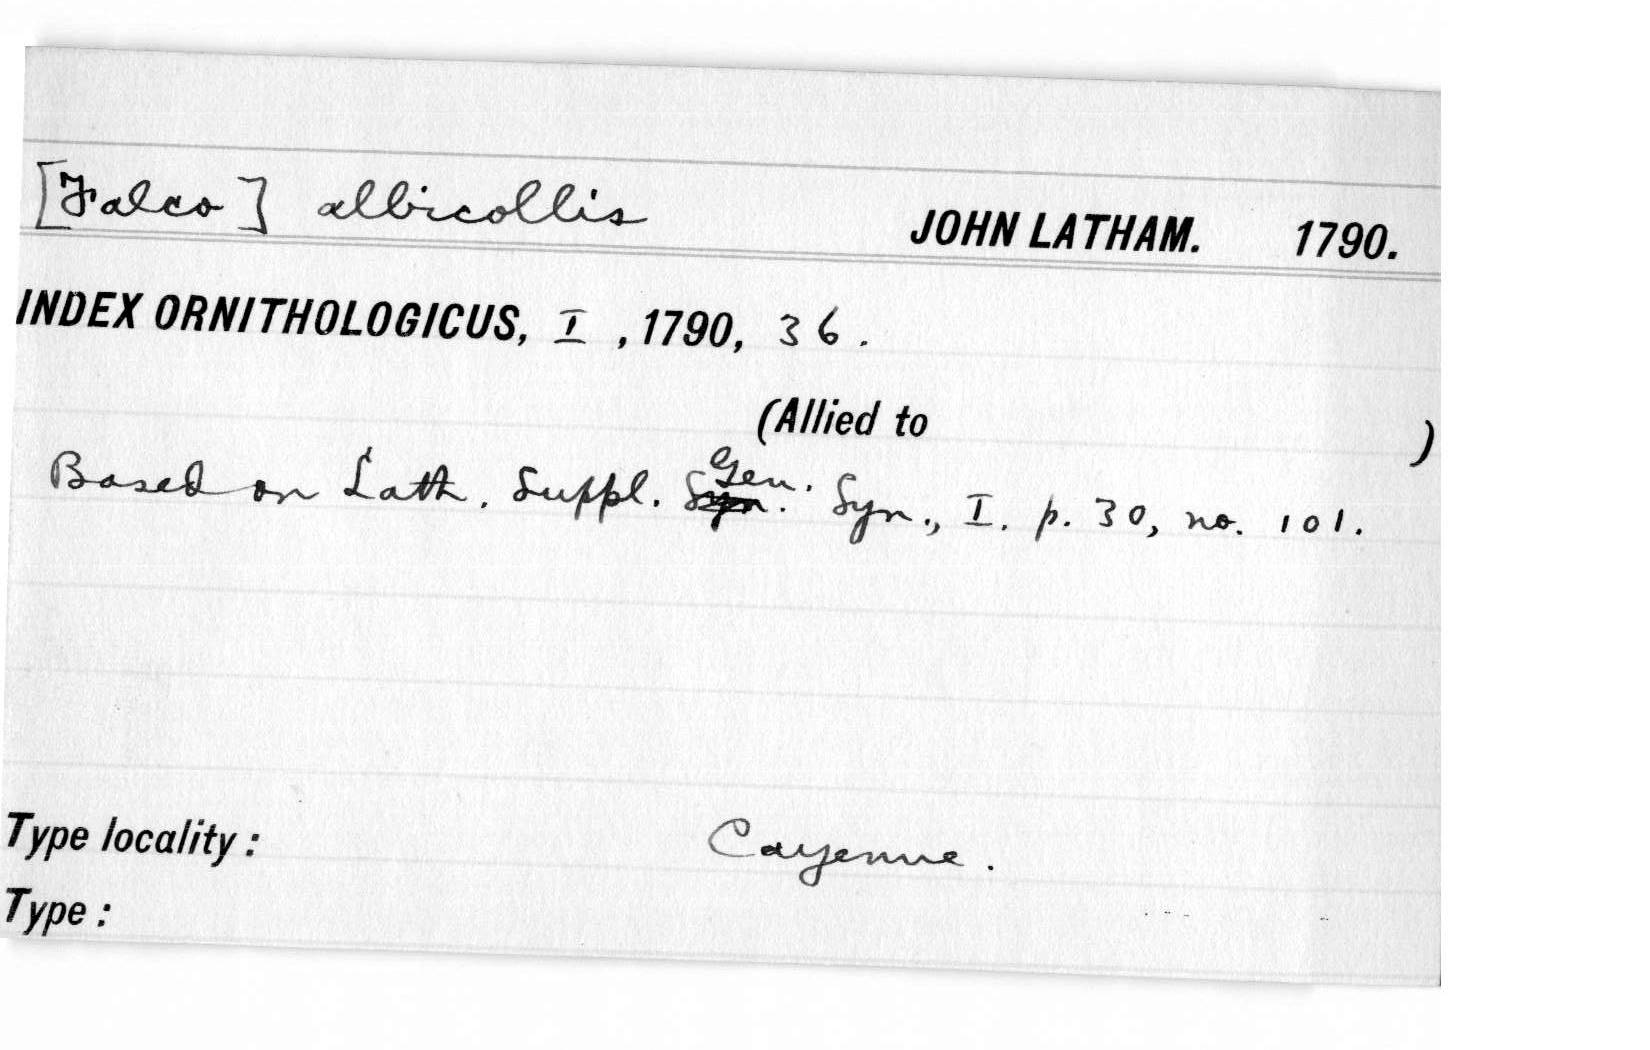 [Falco] albicollis JOHN LATHAM. 1790.
INDEX ORNITHOLOGICUS, I, 1790, 36.
(Allied to )
Based on Lath. Suppl. Gen. Syn., I. p. 30, no. 101.
Type locality: Cayenne.
Type: